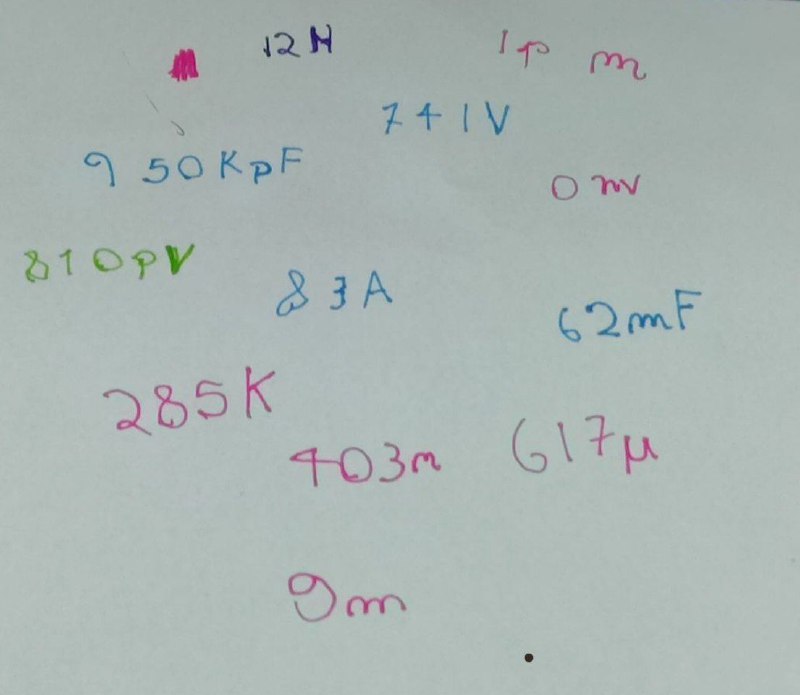 12H
1p m
741V
950KpF
0 nv
810pV
83A
62mF
285K
403n
617µ
9m